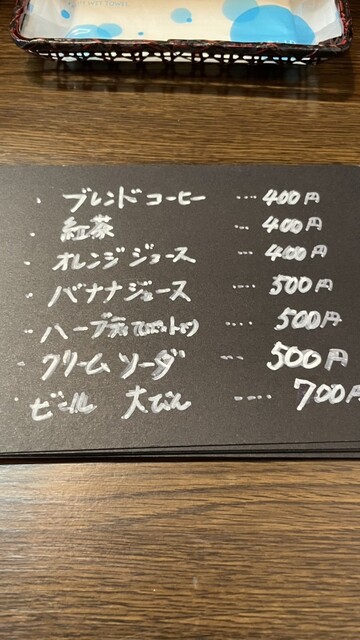 WET TOWEL
・ ブレンドコーヒー …. 400円
・ 紅茶 … 400円
・ オレンジジュース … 400円
・ バナナジュース …. 500円
・ ハーブティ … 500円
・ クリームソーダ … 500円
・ ビール 大びん …. 700円